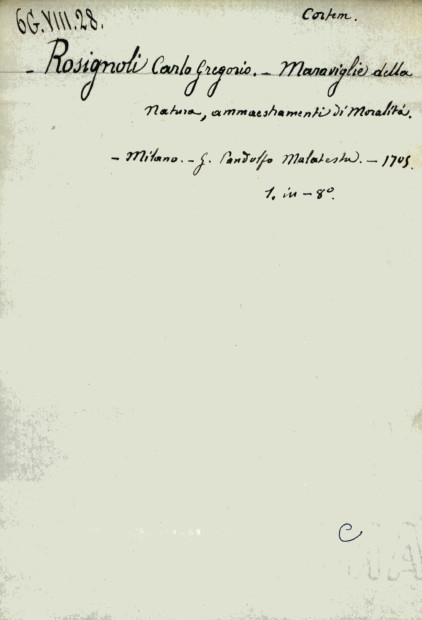 6G.VIII.28.
Cortem.
- Rosignoli Carlo Gregorio. - Maraviglie della
Natura, ammaestramenti di Moralità.
- Milano. - G. Pandolfo Malatesta. - 1705.
1. in - 8°.
C